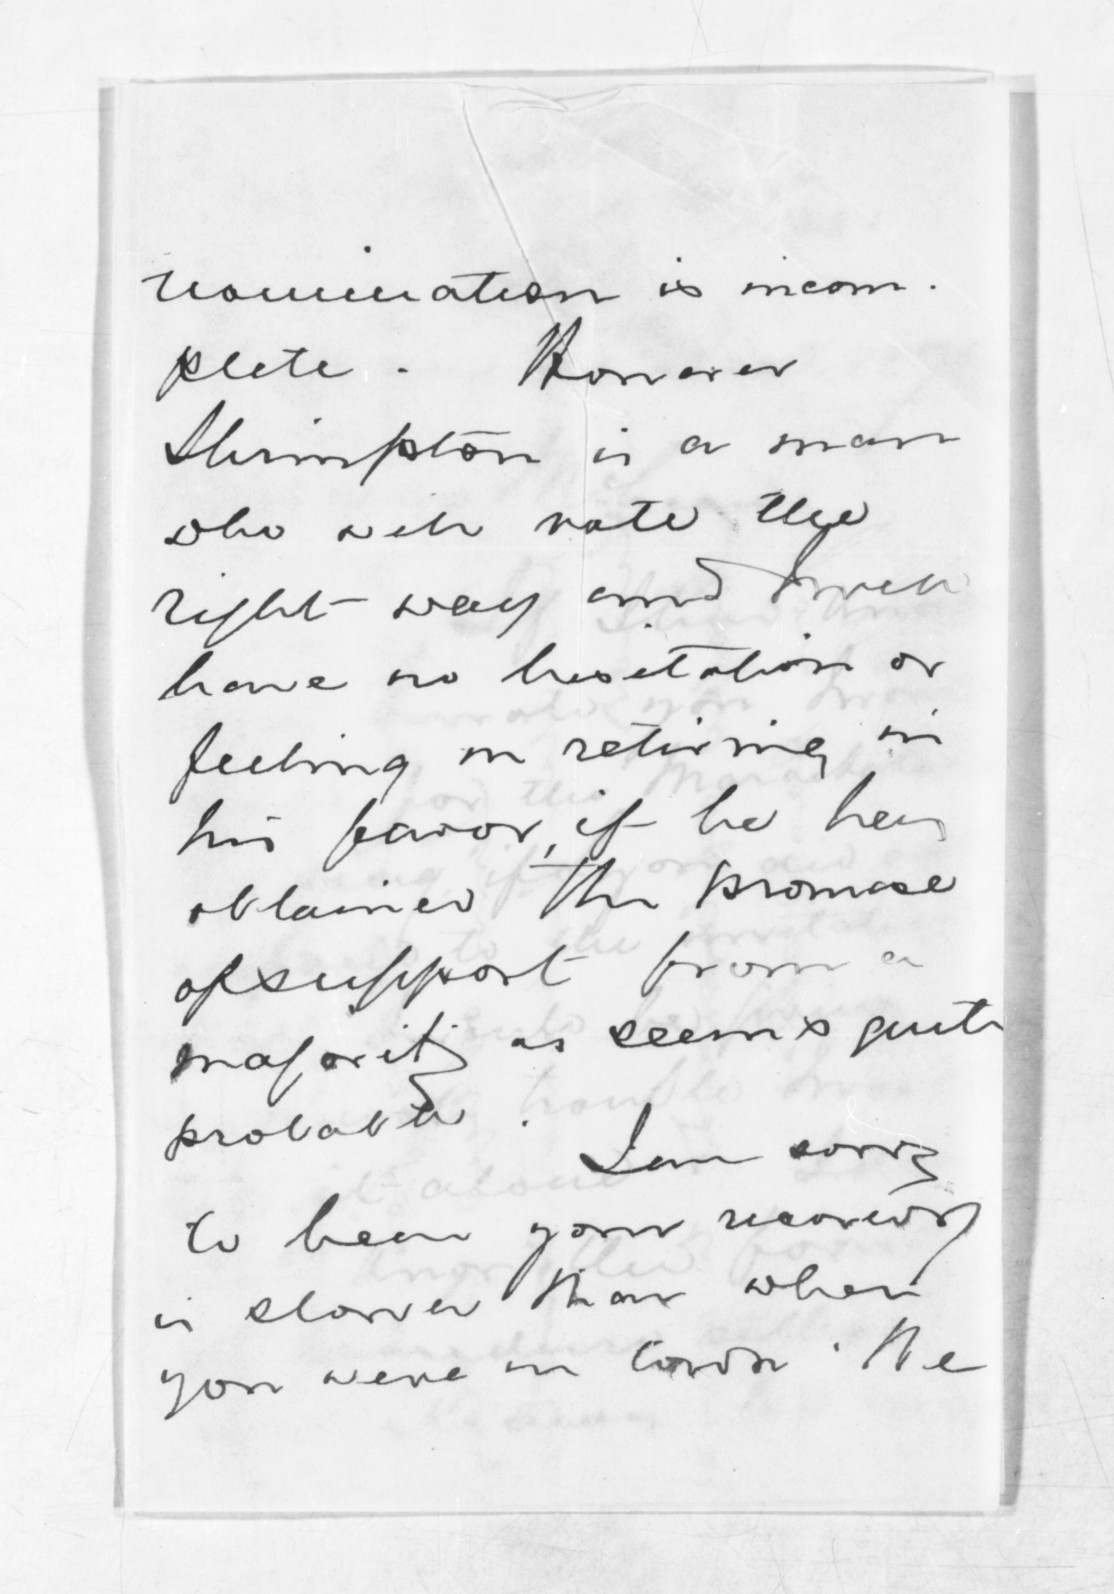 nomination is incom-
plete. However
Shrimpton is a man
who will vote the
right way and I will
have no hesitation or
feeling in retiring in
his favor, if he has
obtained the promise
of support from a
majority as seems quite
probable.
I am sorry
to hear your recovery
is slower than when
you were in town. We